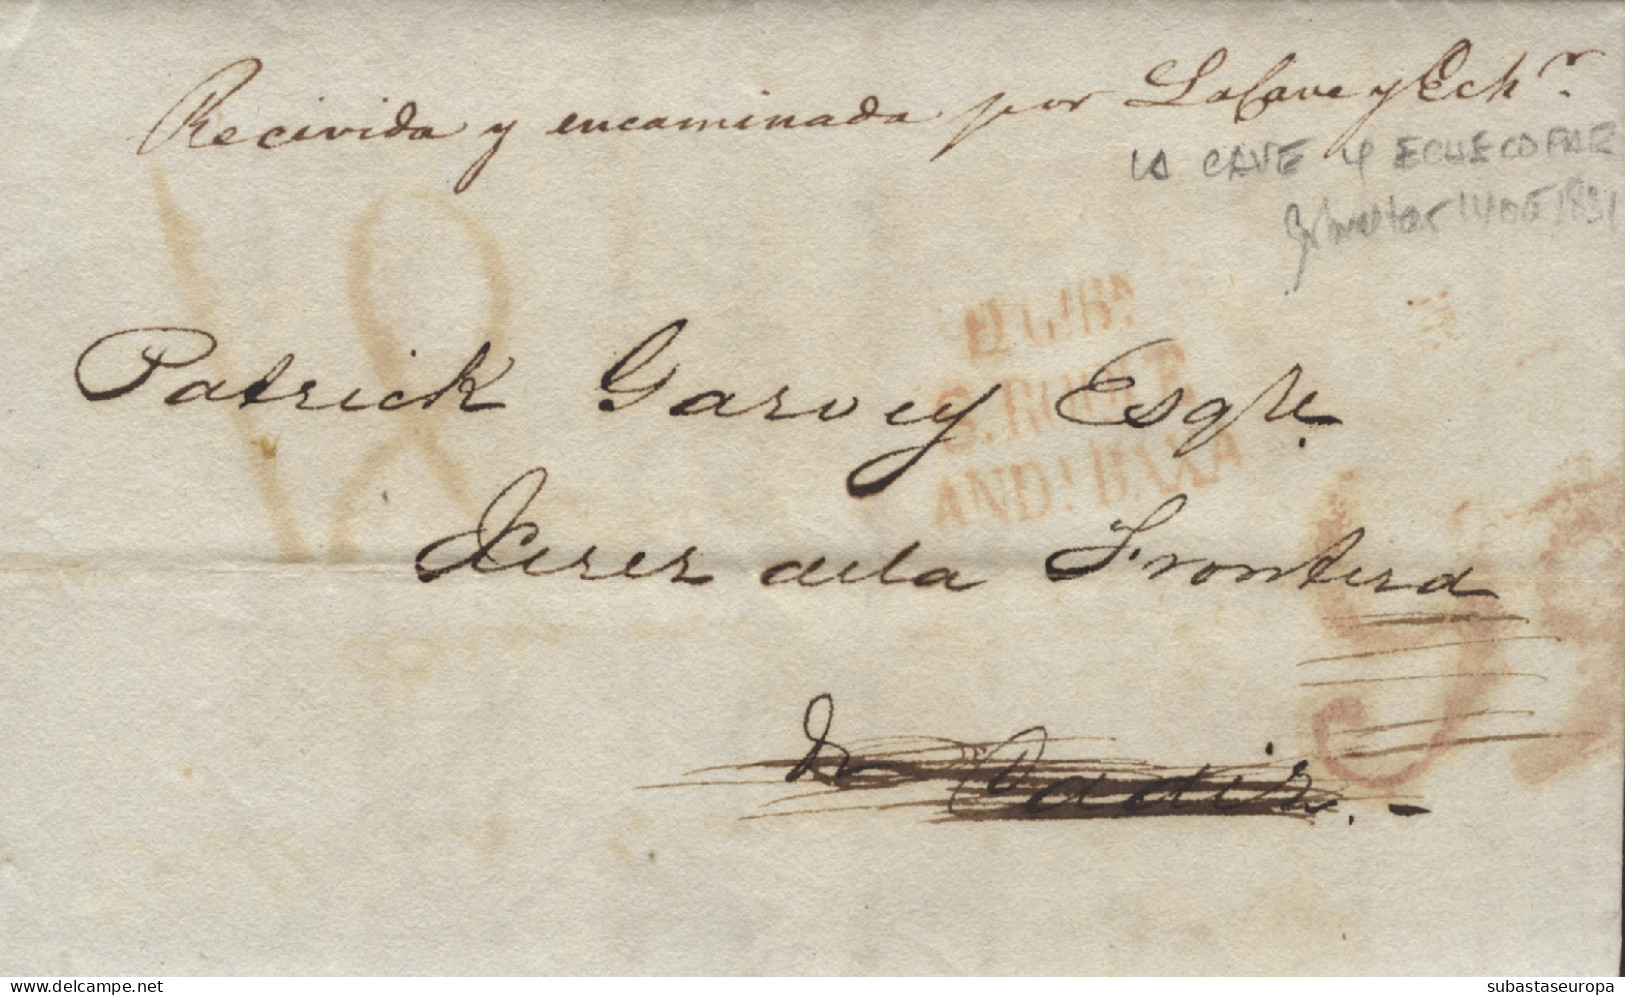 Recivida y encaminada por LaCave y Echr.
LA CAVE Y ECHECOPAR
Gibraltar 14 DE 1831
S. ROQUE
ANDA BAXA
18
Patrick Garvey Esqre.
Xerez de la Frontera
Cadiz.
delcampe.net
subastaseuropa